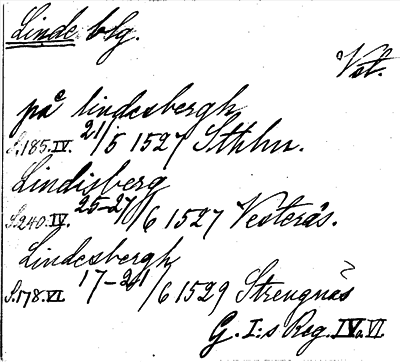 Linde blg.
Vst.
på lindesbergh
S. 185. IV. 21/5 1527 Sthlm.
Lindisberg
S. 240. IV. 25-27/6 1527 Vesterås.
Lindesbergh
S. 178. VI. 17-21/6 1529 Strengnäs
G. I:s Reg. IV o. VI.